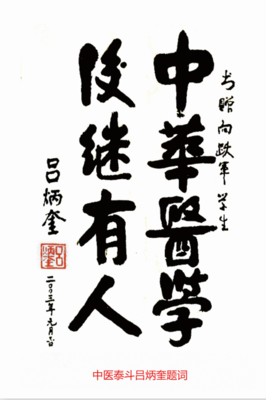 书赠 向跃军 学生
中華醫学
後继有人
吕炳奎
二〇〇三年元月
中医泰斗吕炳奎题词